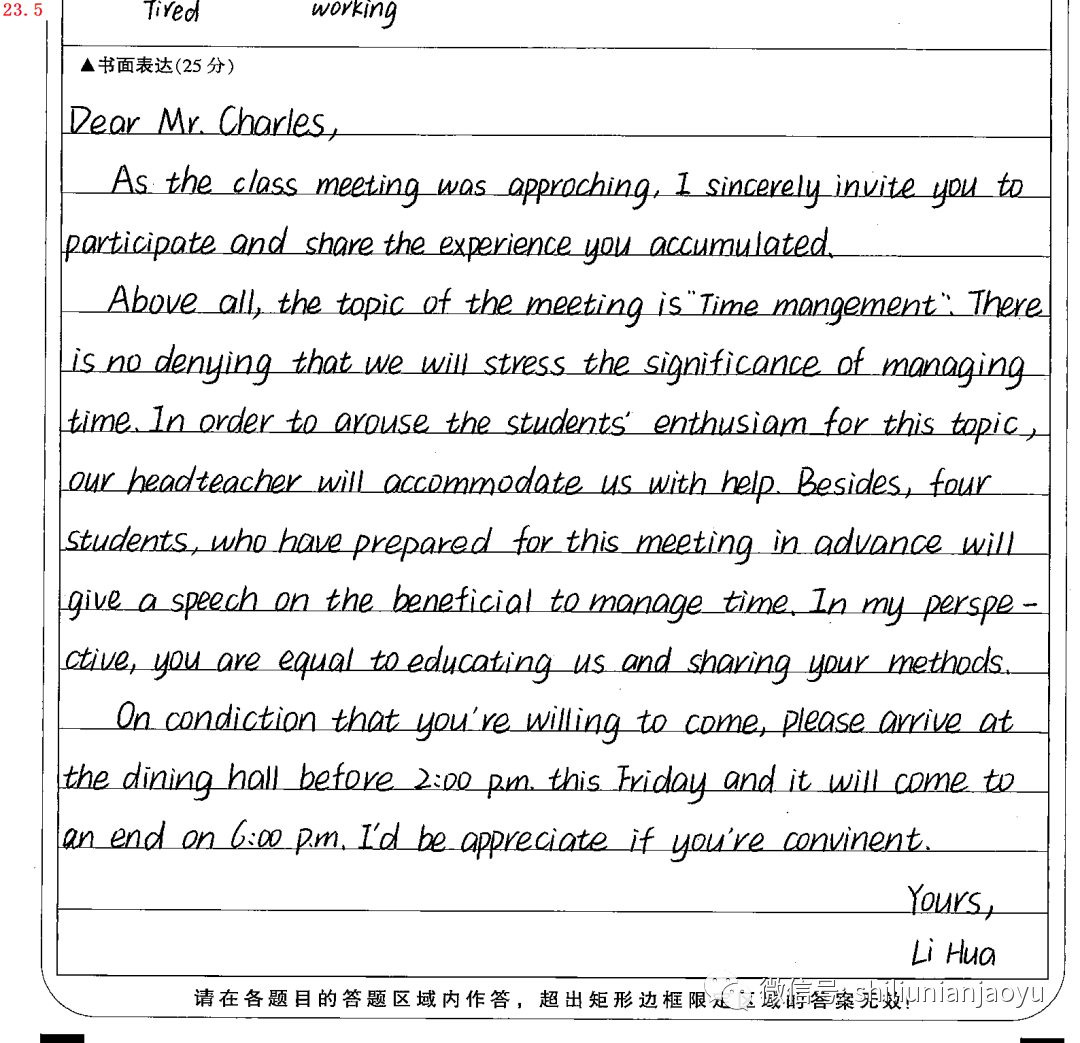 23.5
Tired working
▲书面表达(25分)
Dear Mr. Charles,
As the class meeting was approching, I sincerely invite you to
participate and share the experience you accumulated.
Above all, the topic of the meeting is "Time mangement". There
is no denying that we will stress the significance of managing
time. In order to arouse the students' enthusiam for this topic,
our headteacher will accommodate us with help. Besides, four
students, who have prepared for this meeting in advance will
give a speech on the beneficial to manage time. In my perspe-
ctive, you are equal to educating us and sharing your methods.
On condiction that you're willing to come, please arrive at
the dining hall before 2:00 p.m. this Friday and it will come to
an end on 6:00 p.m. I'd be appreciate if you're convinent.
Yours,
Li Hua
请在各题目的答题区域内作答，超出矩形边框限定区域的答案无效!
微信号: shiliunianjaoyu